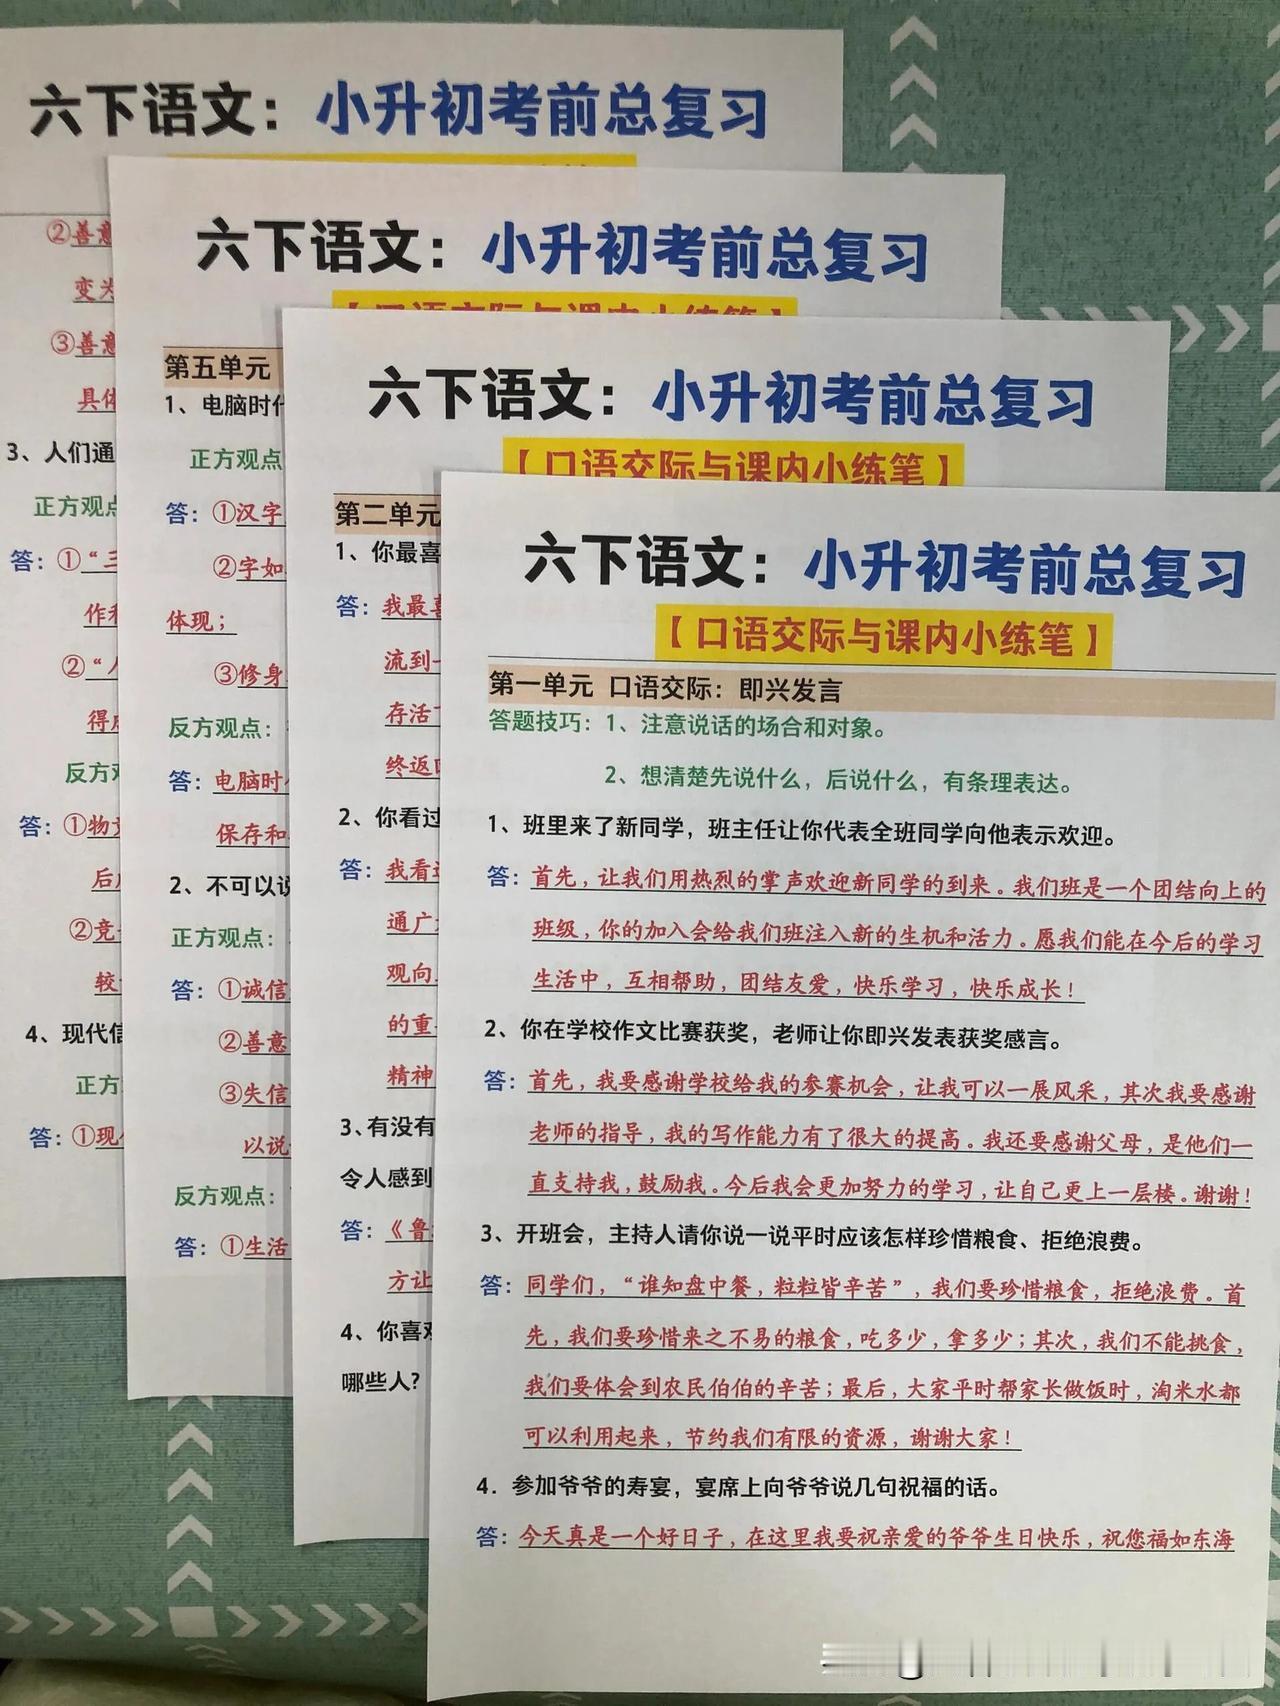 六下语文：小升初考前总复习
②善意
变为
③善意
具体
3、人们通
正方观点
答：①“三
作和
②“人
得成
反方观
答：①物竞
后
②竞
较
4、现代信
正方
答：①现代
六下语文：小升初考前总复习
【口语交际与课内小练笔】
第五单元
1、电脑时代
正方观点
答：①汉字
②字如
体现；
③修身
反方观点：
答：电脑时代
保存和
2、不可以说
正方观点：
答：①诚信
②善意
③失信
以说
反方观点：
答：①生活
六下语文：小升初考前总复习
【口语交际与课内小练笔】
第二单元
1、你最喜
答：我最喜
流到一
存活
终返
2、你看过
答：我看过
通广
观向
的重
精神
3、有没有
令人感到
答：《鲁
方让
4、你喜欢
哪些人？
六下语文：小升初考前总复习
【口语交际与课内小练笔】
第一单元 口语交际：即兴发言
答题技巧：1、注意说话的场合和对象。
2、想清楚先说什么，后说什么，有条理表达。
1、班里来了新同学，班主任让你代表全班同学向他表示欢迎。
答：首先，让我们用热烈的掌声欢迎新同学的到来。我们班是一个团结向上的
班级，你的加入会给我们班注入新的生机和活力。愿我们能在今后的学习
生活中，互相帮助，团结友爱，快乐学习，快乐成长！
2、你在学校作文比赛获奖，老师让你即兴发表获奖感言。
答：首先，我要感谢学校给我的参赛机会，让我可以一展风采，其次我要感谢
老师的指导，我的写作能力有了很大的提高。我还要感谢父母，是他们一
直支持我，鼓励我。今后我会更加努力的学习，让自己更上一层楼。谢谢！
3、开班会，主持人请你说一说平时应该怎样珍惜粮食、拒绝浪费。
答：同学们，“谁知盘中餐，粒粒皆辛苦”，我们要珍惜粮食，拒绝浪费。首
先，我们要珍惜来之不易的粮食，吃多少，拿多少；其次，我们不能挑食，
我们要体会到农民伯伯的辛苦；最后，大家平时帮家长做饭时，淘米水都
可以利用起来，节约我们有限的资源，谢谢大家！
4．参加爷爷的寿宴，宴席上向爷爷说几句祝福的话。
答：今天真是一个好日子，在这里我要祝亲爱的爷爷生日快乐，祝您福如东海